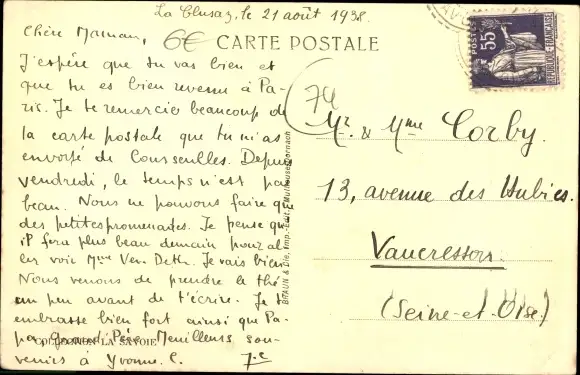 La Clusaz, le 21 août 1938.
6€ CARTE POSTALE
Chère Maman,
J'espère que tu vas bien et
que tu es bien revenue à Pa-
ris. Je te remercie beaucoup de
la carte postale que tu m'as
envoyée de Courseulles. Depuis
vendredi, le temps n'est pas
beau. Nous ne pouvons faire que
des petites promenades. Je pense qu'
il fera plus beau demain pour al-
ler voir Mme Ven Deth. Je vais bien.
Nous venons de prendre le thé
un peu avant de t'écrire. Je t'
embrasse bien fort ainsi que Pa-
pa, grand Père. Meilleurs sou-
venirs à Yvonne. C.
7.C
COLLECTION LA SAVOIE
BRAUN & Cie, Imp.-Edit., Mulhouse-Dornach
74
POSTES
55c
RÉPUBLIQUE FRANÇAISE
Mr. & Mme Corby.
13, avenue des Hubies.
Vaucresson.
(Seine-et-Oise)